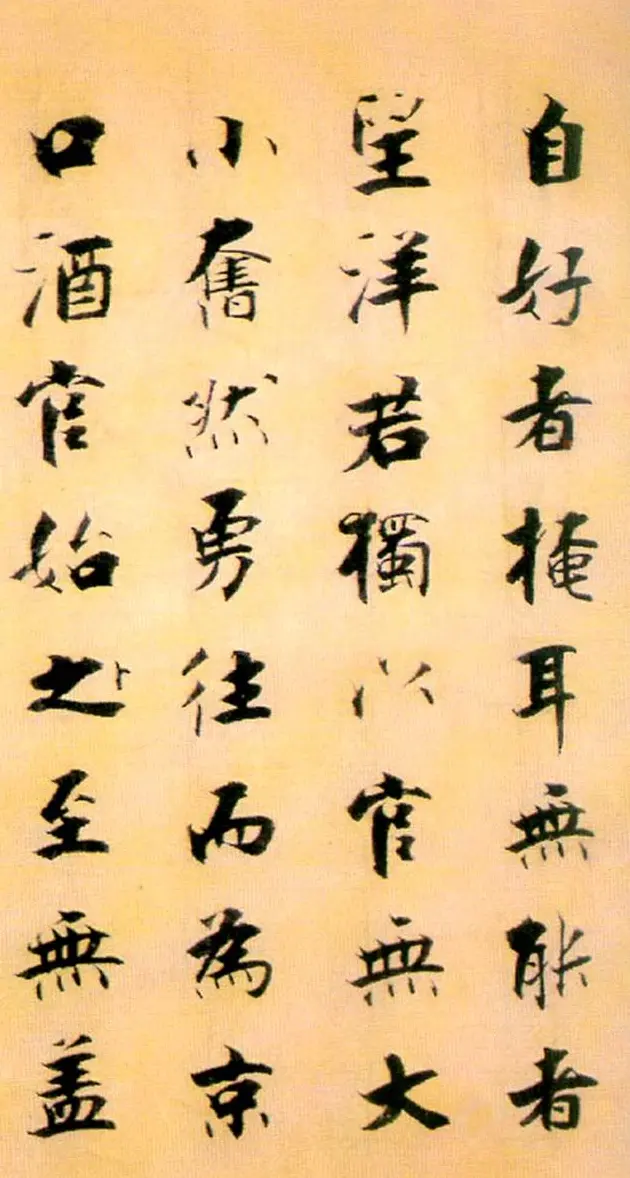 自好者掩耳無能者
望洋若獨以官無大
小奮然勇往而為京
口酒官始之至無盖